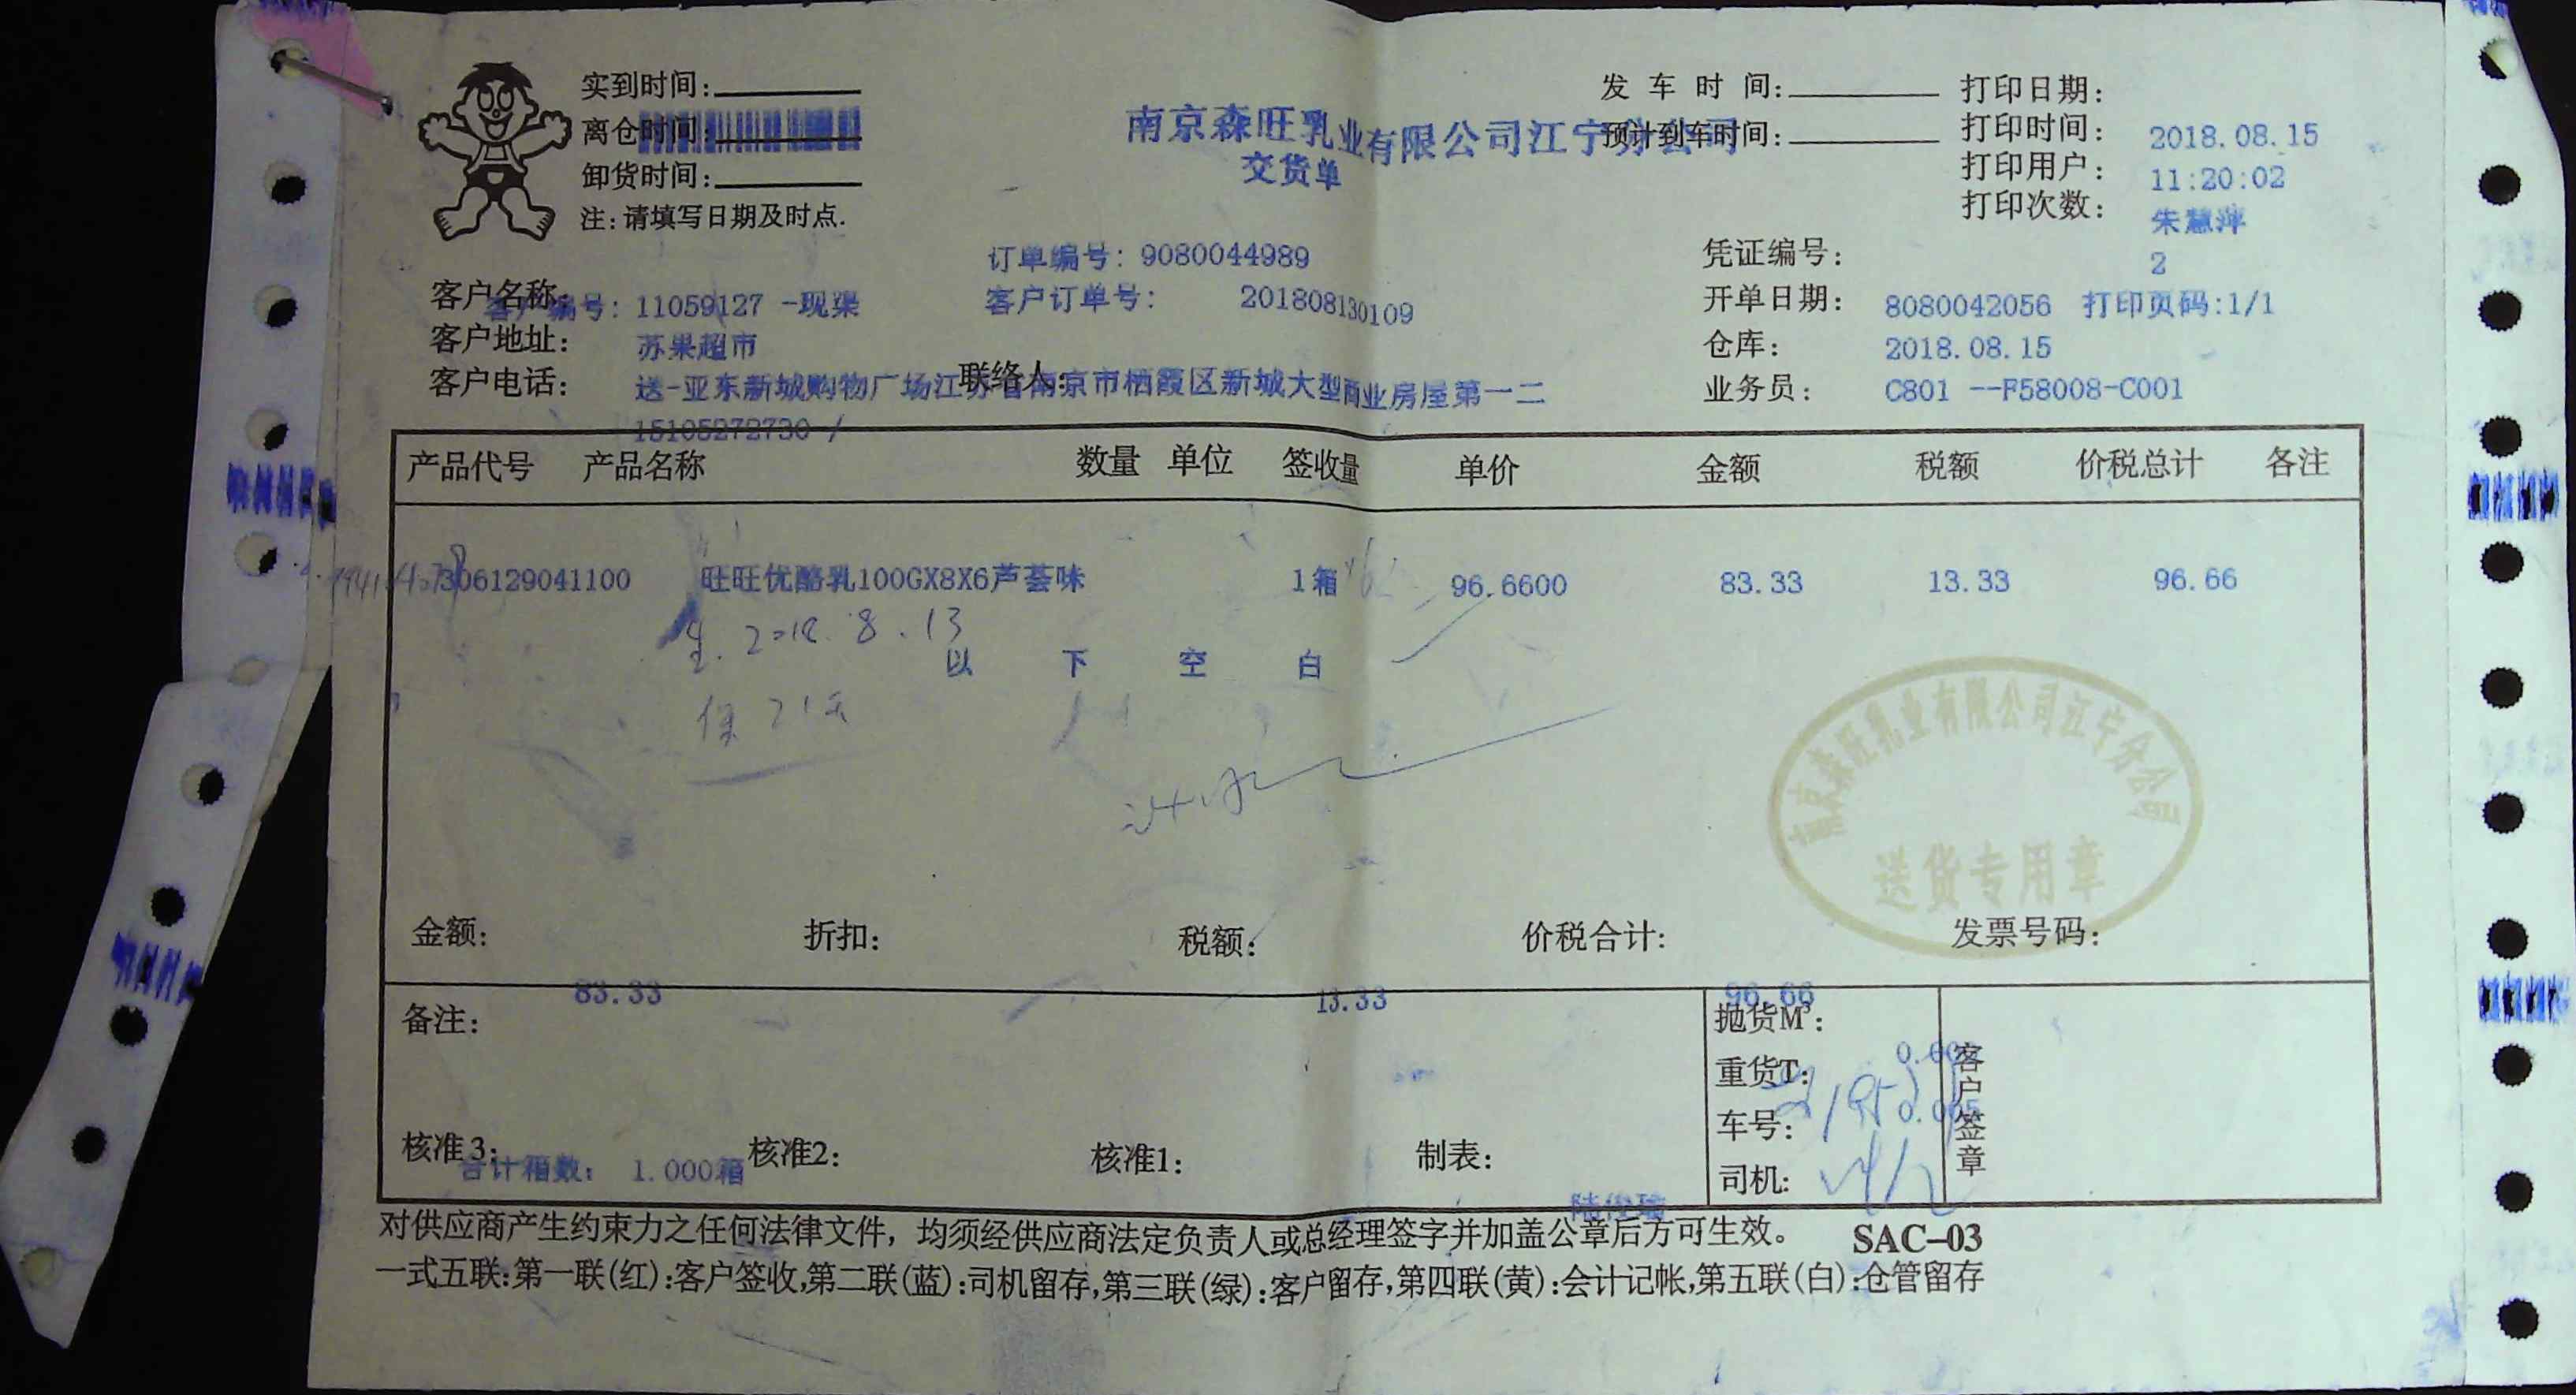 实到时间:
离仓时间:
卸货时间:
注:请填写日期及时点.
南京森旺乳业有限公司江宁分公司
交货单
发车时间:
预计到车时间:
打印日期:
打印时间: 2018.08.15
打印用户: 11:20:02
打印次数: 朱慧萍
2
订单编号: 9080044989
凭证编号:
客户名称:
客户编号: 11059127 -现渠
客户订单号: 201808130109
开单日期: 8080042056 打印页码:1/1
客户地址: 苏果超市
仓库: 2018.08.15
客户电话: 送-亚东新城购物广场江苏省南京市栖霞区新城大型商业房屋第一二
联络人:
业务员: C801 --F58008-C001
15105272730 /
产品代号 产品名称 数量 单位 签收量 单价 金额 税额 价税总计 各注
306129041100 旺旺优酪乳100GX8X6芦荟味 1箱 96.6600 83.33 13.33 96.66
生.2018.8.13
以 下 空 白
保21天
南京森旺乳业有限公司江宁分公司
送货专用章
金额: 折扣: 税额: 价税合计: 发票号码:
83.33 13.33 96.66
备注:
抛货M³:
重货T:
车号:
司机:
客户签章
核准3: 核准2: 核准1: 制表:
合计箱数: 1.000箱
陆俊瑞
对供应商产生约束力之任何法律文件，均须经供应商法定负责人或总经理签字并加盖公章后方可生效。 SAC-03
一式五联:第一联(红):客户签收,第二联(蓝):司机留存,第三联(绿):客户留存,第四联(黄):会计记帐,第五联(白):仓管留存